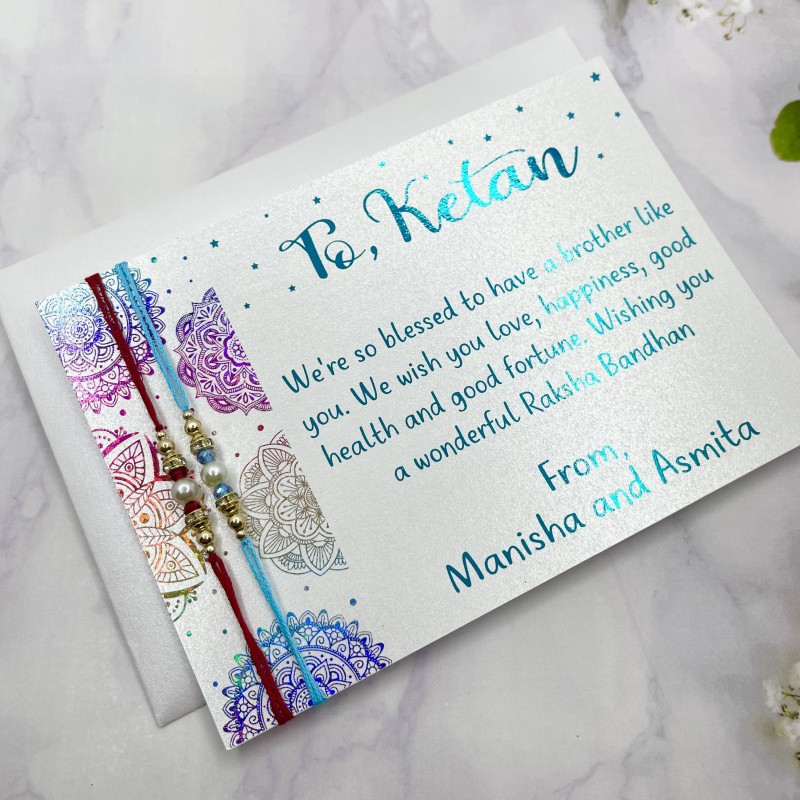 To, Ketan
We're so blessed to have a brother like
you. We wish you love, happiness, good
health and good fortune. Wishing you
a wonderful Raksha Bandhan
From,
Manisha and Asmita